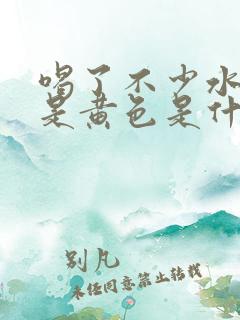 喝了不少水
是黄色是什
别凡
未经同意禁止转载